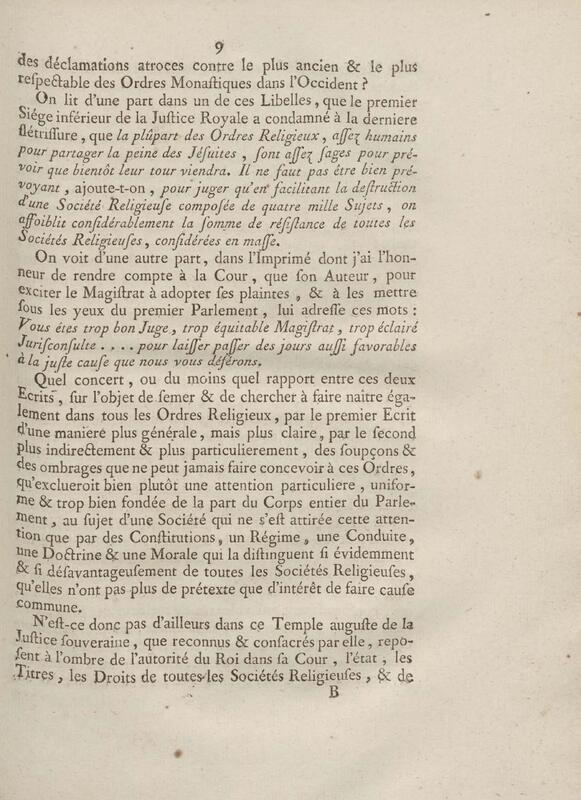 9
des déclamations atroces contre le plus ancien & le plus
reſpectable des Ordres Monaſtiques dans l'Occident ?
On lit d'une part dans un de ces Libelles, que le premier
Siége inférieur de la Juſtice Royale a condamné à la derniere
flétriſſure, que la plûpart des Ordres Religieux, aſſez humains
pour partager la peine des Jéſuites, ſont aſſez ſages pour pré-
voir que bientôt leur tour viendra. Il ne faut pas être bien pré-
voyant, ajoute-t-on, pour juger qu'en facilitant la deſtruction
d'une Société Religieuſe compoſée de quatre mille Sujets, on
affoiblit conſidérablement la ſomme de réſiſtance de toutes les
Sociétés Religieuſes, conſidérées en maſſe.
On voit d'une autre part, dans l'Imprimé dont j'ai l'hon-
neur de rendre compte à la Cour, que ſon Auteur, pour
exciter le Magiſtrat à adopter ſes plaintes, & à les mettre
ſous les yeux du premier Parlement, lui adreſſe ces mots :
Vous êtes trop bon Juge, trop équitable Magiſtrat, trop éclairé
Juriſconſulte .... pour laiſſer paſſer des jours auſſi favorables
à la juſte cauſe que nous vous déférons.
Quel concert, ou du moins quel rapport entre ces deux
Ecrits, ſur l'objet de ſemer & de chercher à faire naître éga-
lement dans tous les Ordres Religieux, par le premier Ecrit
d'une maniere plus générale, mais plus claire, par le ſecond
plus indirectement & plus particulierement, des ſoupçons &
des ombrages que ne peut jamais faire concevoir à ces Ordres,
qu'exclueroit bien plutôt une attention particuliere, unifor-
me & trop bien fondée de la part du Corps entier du Parle-
ment, au ſujet d'une Société qui ne s'eſt attirée cette atten-
tion que par des Conſtitutions, un Régime, une Conduite,
une Doctrine & une Morale qui la diſtinguent ſi évidemment
& ſi déſavantageuſement de toutes les Sociétés Religieuſes,
qu'elles n'ont pas plus de prétexte que d'intérêt de faire cauſe
commune.
N'eſt-ce donc pas d'ailleurs dans ce Temple auguſte de la
Juſtice ſouveraine, que reconnus & conſacrés par elle, repo-
ſent à l'ombre de l'autorité du Roi dans ſa Cour, l'état, les
Titres, les Droits de toutes les Sociétés Religieuſes, & de
B